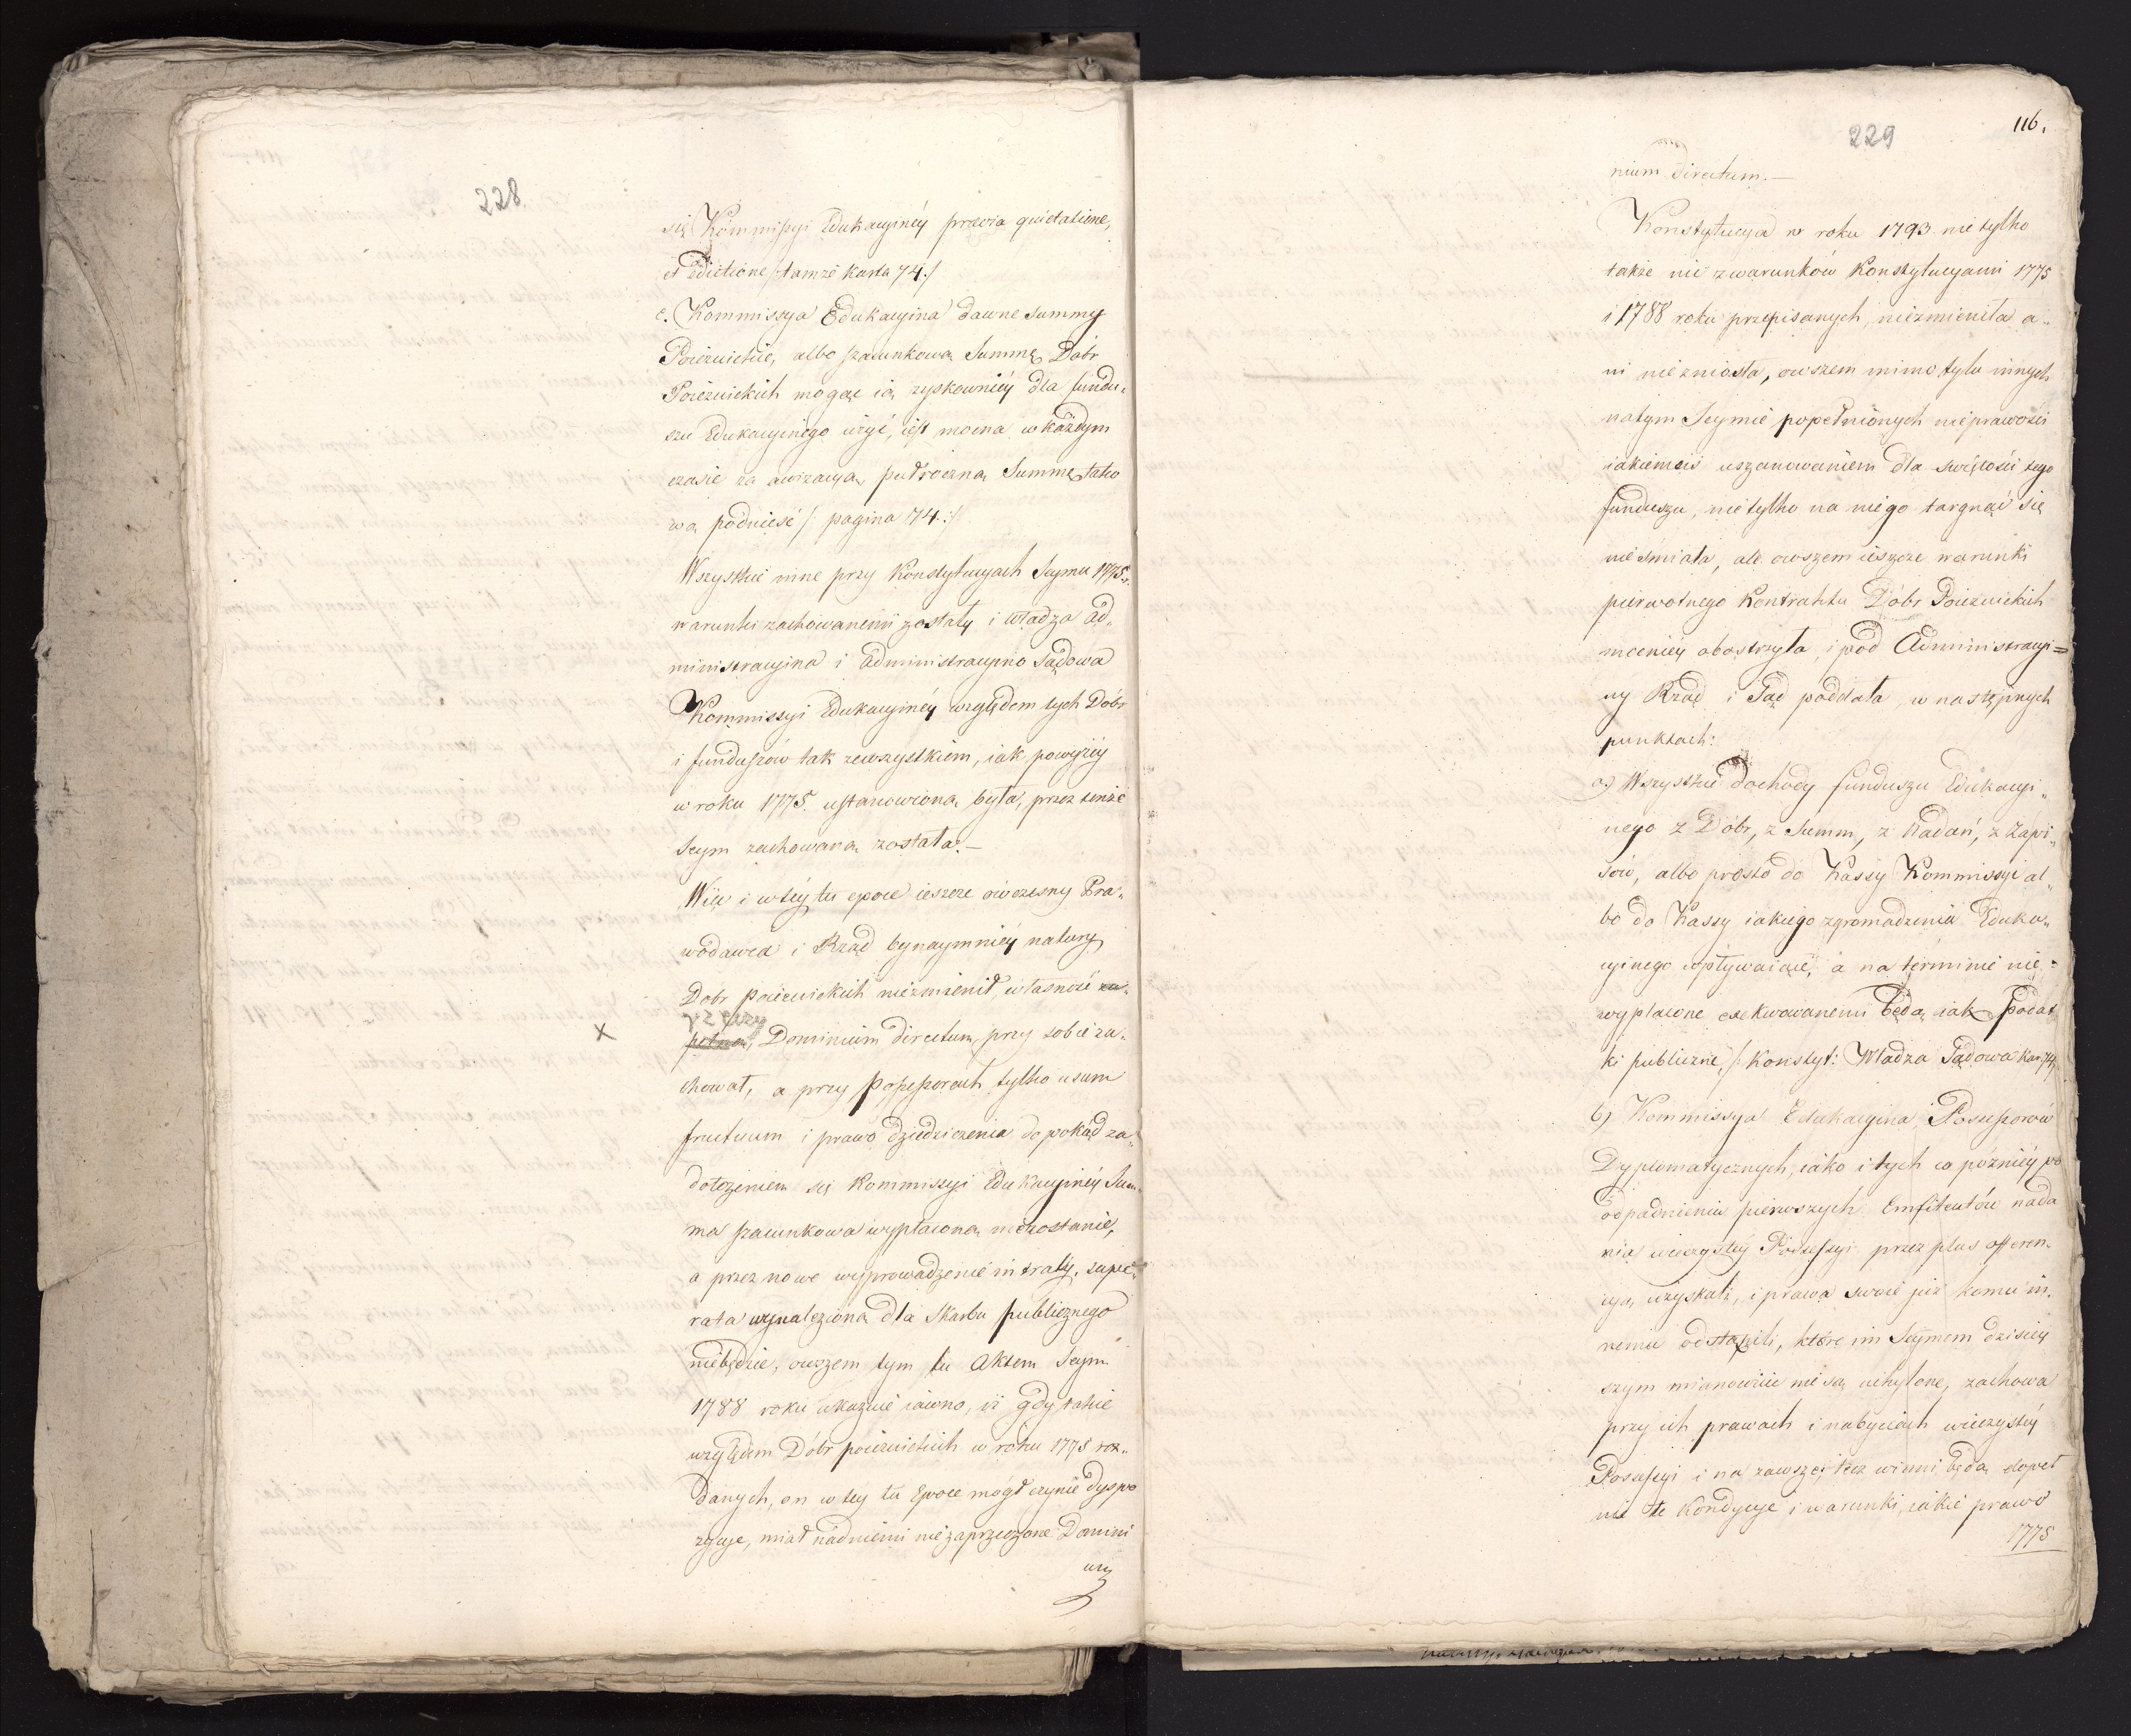 228.
się Kommissyi Edukacyinéy prævia quietatione,
et edictione /: tamże karta 74 :/
c. Kommissya Edukacyina dawne summy
Pojezuickie, albo szacunkową Summę Dóbr
Pojezuickich mogąc ią zyskowniéy dla fundu„
szu Edukacyinego użyć, iest mocna w każdym
czasie za awizacyą półroczną Summę tako
wą podnieść /: pagina 74 :/
Wszystkie inne przy Konstytucyach Seymu 1775 r.
warunki zachowanemi zostały i władza ad„
ministracyina i administracyino Sądowa
Kommissyi Edukacyinéy względem tych Dóbr
i funduszów tak zewszystkiem, iak powyżéy
w roku 1775. ustanowioną była, przez tenże
Seym zachowaną została.—
Więc i w téy tu epoce ieszcze ówczesny Pra„
wodawca i Rząd bynaymniéy natury
Dobr pojezuickich niezmienił, własność zu„
X
pełną, Dominium directum przy sobie za„
chował, a przy possessorach tylko usum
fructuum i prawo dziedziczenia dopokąd za„
dołożeniem się Kommissyi Edukacyinéy Sum„
ma szacunkowa wypłaconą niezostanie,
a przez nowe wyprowadzenie intraty, supe„
rata wynalezioną dla Skarbu publicznego
niebędzie, owszem tym tu aktem Seym
1788 roku ukazuie iawno, iż gdy takie
względem Dóbr pojezuickich w roku 1775 roz„
danych, on w téy tu Epoce mógł czynić dyspo
zycye, miał nad niemi niezaprzeczone Domini
um
229
116.
nium directum.—
Konstytucya w roku 1793 nie tylko
także nic z warunków Konstytucyami 1775
i 1788 roku przepisanych, niezmieniła a„
ni niezniosła, owszem mimo tylu innych
na tym Seymie popełnionych nieprawości
iakiemciś uszanowaniem dla świętości tego
funduszu, nietylko na niego targnąć się
nieśmiała, ale owszem ieszcze warunki
pierwotnego Kontraktu Dóbr Pojezuickich
mocniéy obostrzyła, i pod Administracyi=
ny Rząd i Sąd poddała, w następnych
punktach:
a) Wszystkie dochody funduszu Edukacyi„
nego z Dóbr, z Summ, z Nadań, z Zapi„
sów, albo prosto do Kassy Kommissyi al„
bo do Kassy iakiego zgromadzenia Eduka„
cyinego wpływaiące, a na terminie nie=
wypłacone exekwowanemi będą iak podat
ki publiczne, /: Konstyt: Władza Sądowa kar: 74,
b) Kommissya Edukacyina Possessorów
Dyplomatycznych, iako i tych co późniéy po
odpadnieniu pierwszych Emfiteutów nada
nia wieczystéy Possessyi przez plus offeren„
cyą uzyskali, i prawa swoie już komu in„
nemu odstąpili, które im Seymem dzisiéy
szym mianowicie nie są uchylone, zachowa
przy ich prawach i nabyciach wieczystéy
Possessyi i na zawsze, lecz winni będą dopeł
nić te Kondycye i warunki, iakie prawo
1775